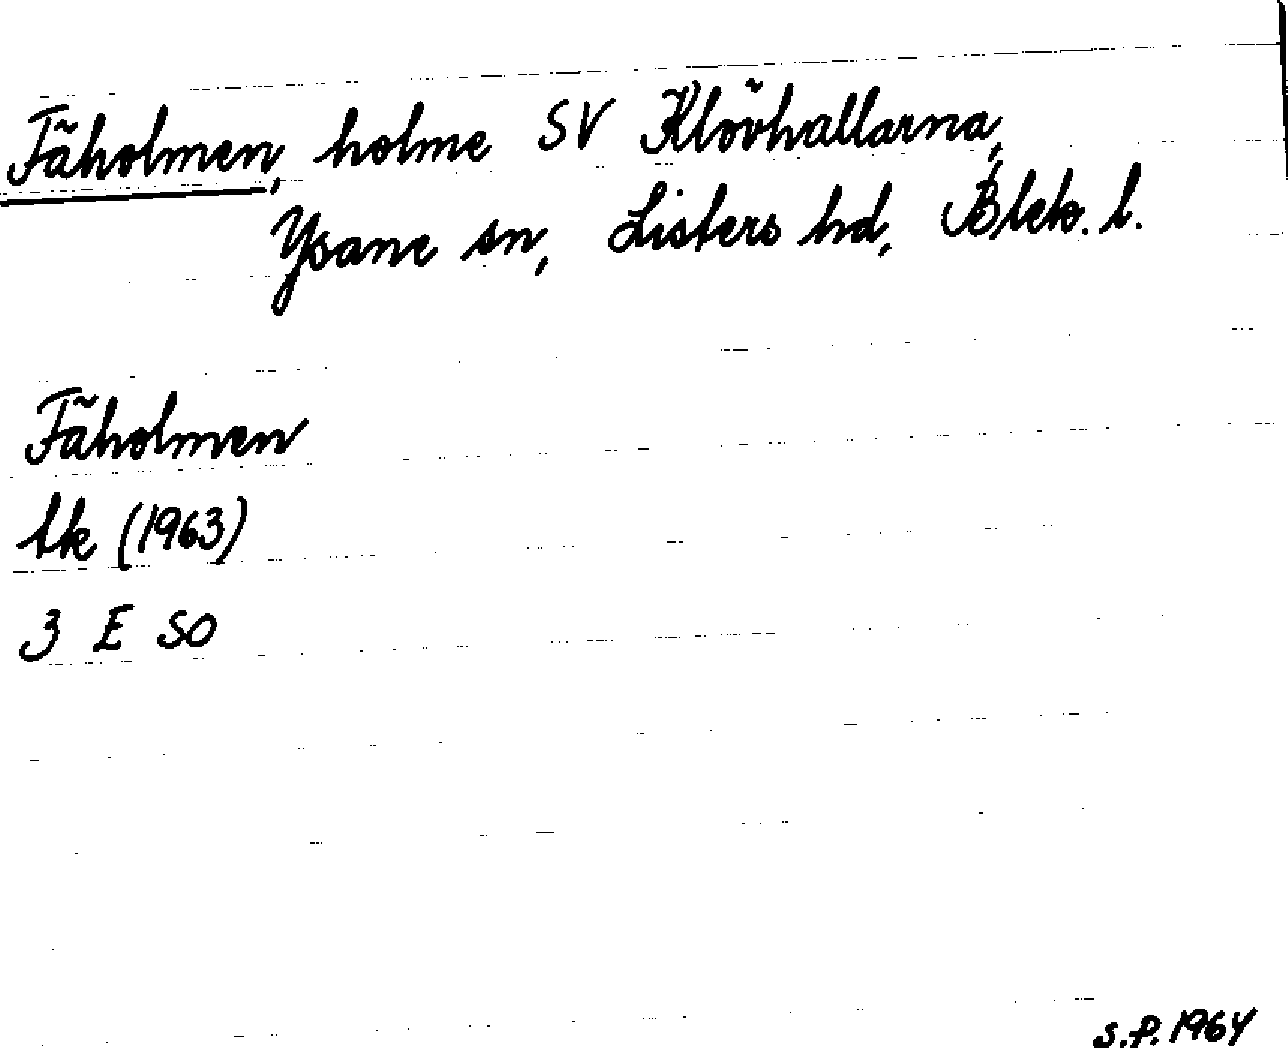 Fäholmen, holme SV Klövhallarna,
Ysane sn, Listers hd, Blek. l.
Fäholmen
tk (1963)
3 E SO
S.P. 1964